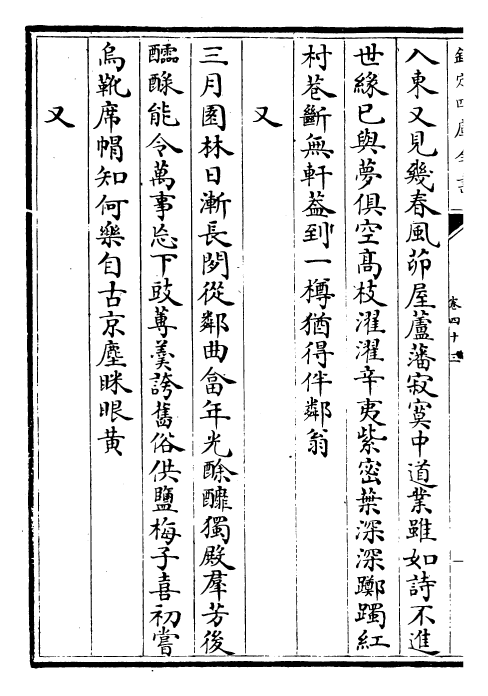 欽定四庫全書
卷四十二
入東又見幾春風茆屋蘆藩寂寞中道業雖如詩不進
世緣已與夢俱空高枝濯濯辛夷紫密葉深深躑躅紅
村巷斷無軒蓋到一樽猶得伴鄰翁
又
三月園林日漸長閉從鄰曲畣年光酴醾獨殿羣芳後
醹醁能令萬事忘下豉蓴羮誇舊俗供鹽梅子喜初嘗
烏靴席帽知何樂自古京塵眯眼黄
又